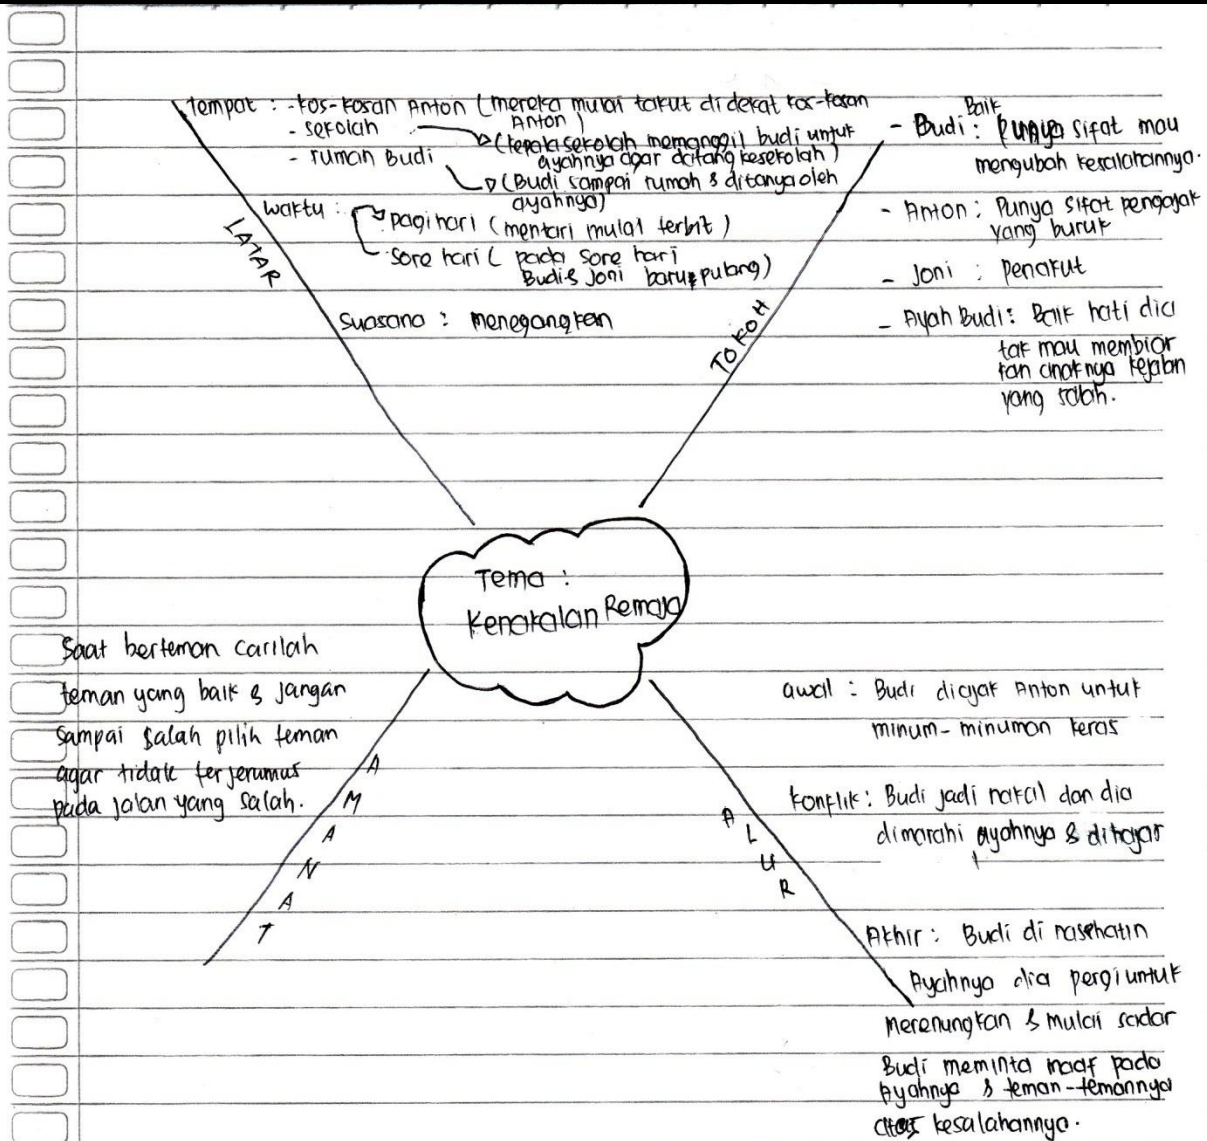 Tempat : - kos-kosan Anton (mereka mulai takut di dekat kos-kosan
Anton)
- sekolah (kepala sekolah memanggil budi untuk
ayahnya agar datang kesekolah)
- rumah Budi (Budi sampai rumah & ditanya oleh
ayahnya)
waktu : pagi hari (mentari mulai terbit)
sore hari ( pada sore hari
Budi & Joni baru pulang)
Suasana : menegangkan
LATAR
Baik
- Budi : Punya sifat mau
mengubah kesalahannya.
- Anton : Punya sifat pengajak
yang buruk
- Joni : penakut
- Ayah Budi : Baik hati dia
tak mau membiar
kan anaknya kejalan
yang salah.
TOKOH
Tema :
Kenakalan Remaja
Saat berteman carilah
teman yang baik & jangan
sampai salah pilih teman
agar tidak terjerumus
pada jalan yang salah.
AMANAT
awal : Budi diajak Anton untuk
minum-minuman keras
konflik : Budi jadi nakal dan dia
dimarahi ayahnya & dihajar
Akhir : Budi di nasehatin
Ayahnya dia pergi untuk
merenungkan & mulai sadar
Budi meminta maaf pada
Ayahnya & teman-temannya
atas kesalahannya.
ALUR